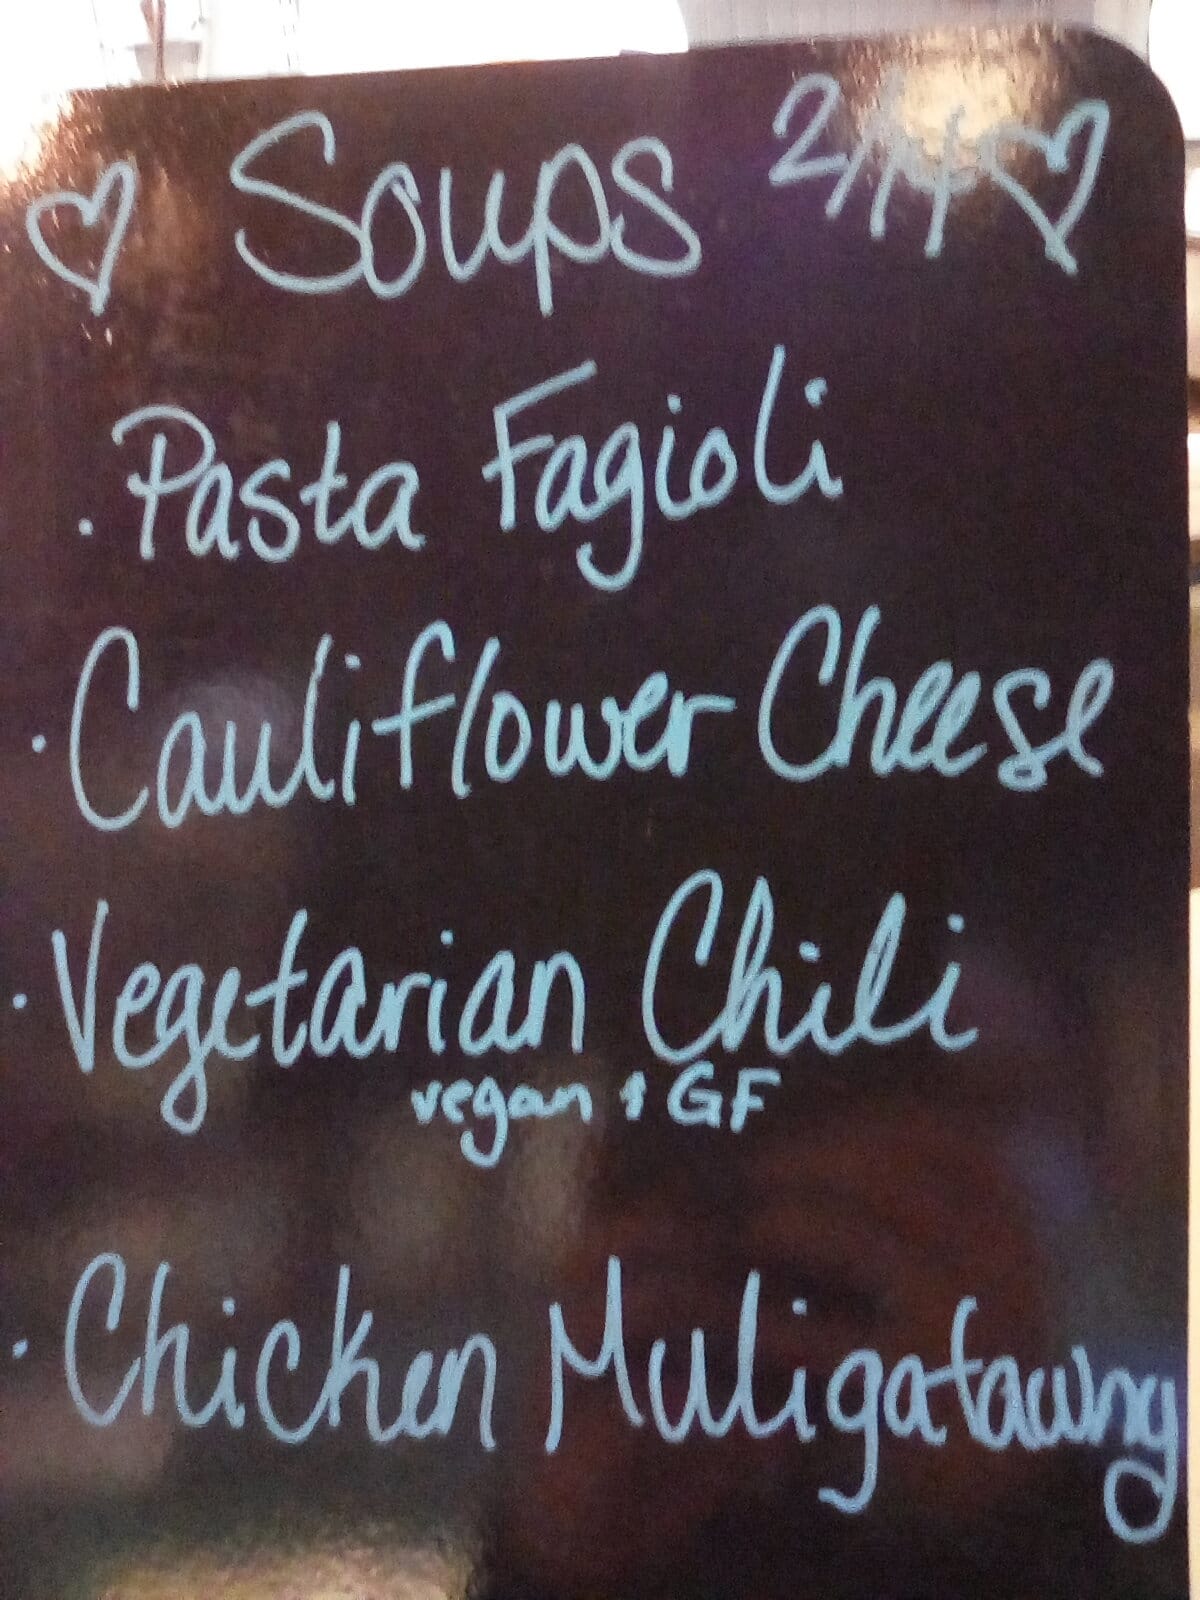 ♡ Soups 2/14 ♡
· Pasta Fagioli
· Cauliflower Cheese
· Vegetarian Chili
vegan & GF
· Chicken Muligatawny